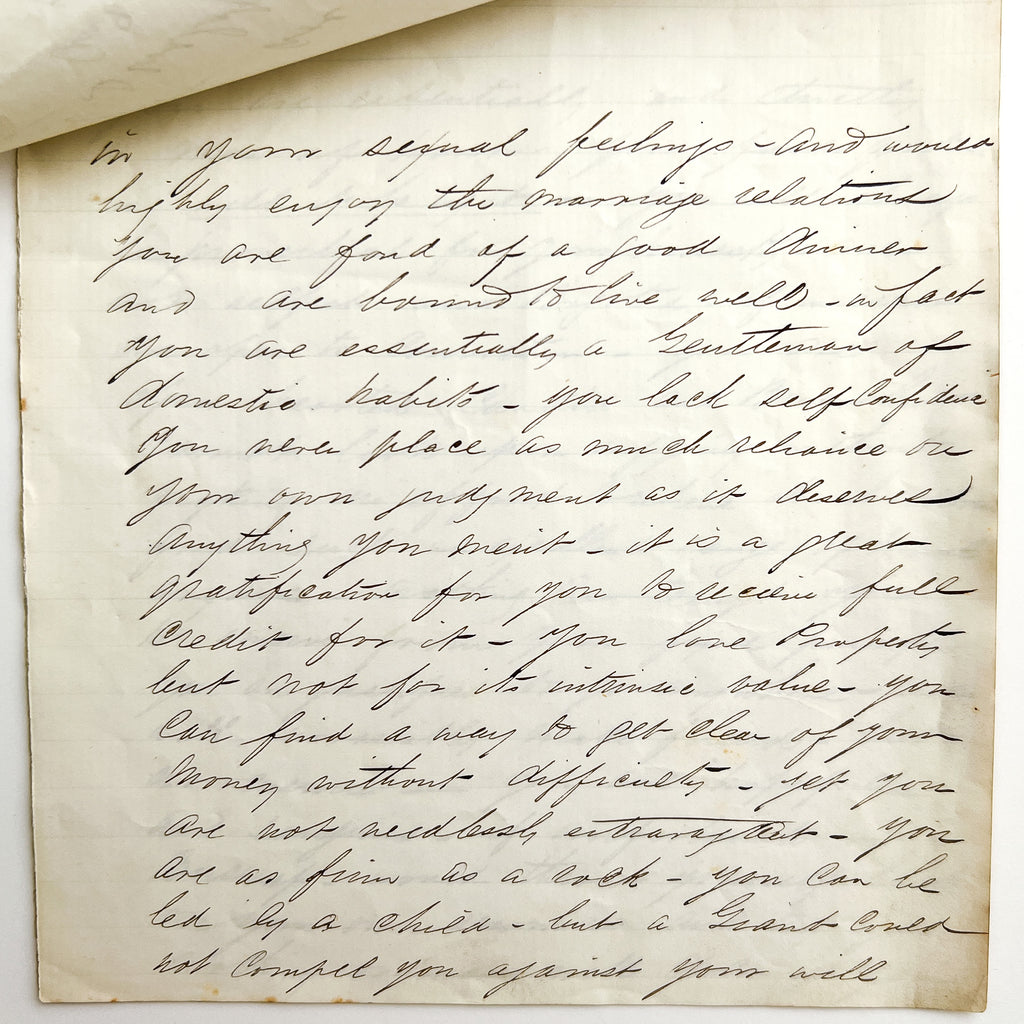 in your sexual feelings - and would
highly enjoy the marriage relations
you are fond of a good dinner
and are bound to live well - in fact
you are essentially a Gentleman of
domestic habits - you lack self Confidence
You never place as much reliance on
your own judgment as it deserves
Anything you merit - it is a great
gratification for you to recieve full
Credit for it - you love Property
but not for its intrinsic value - you
Can find a way to get clear of your
Money without difficulty - yet you
are not needlessly extravagant - you
are as firm as a rock - you can be
led by a child - but a Giant could
not compel you against your will